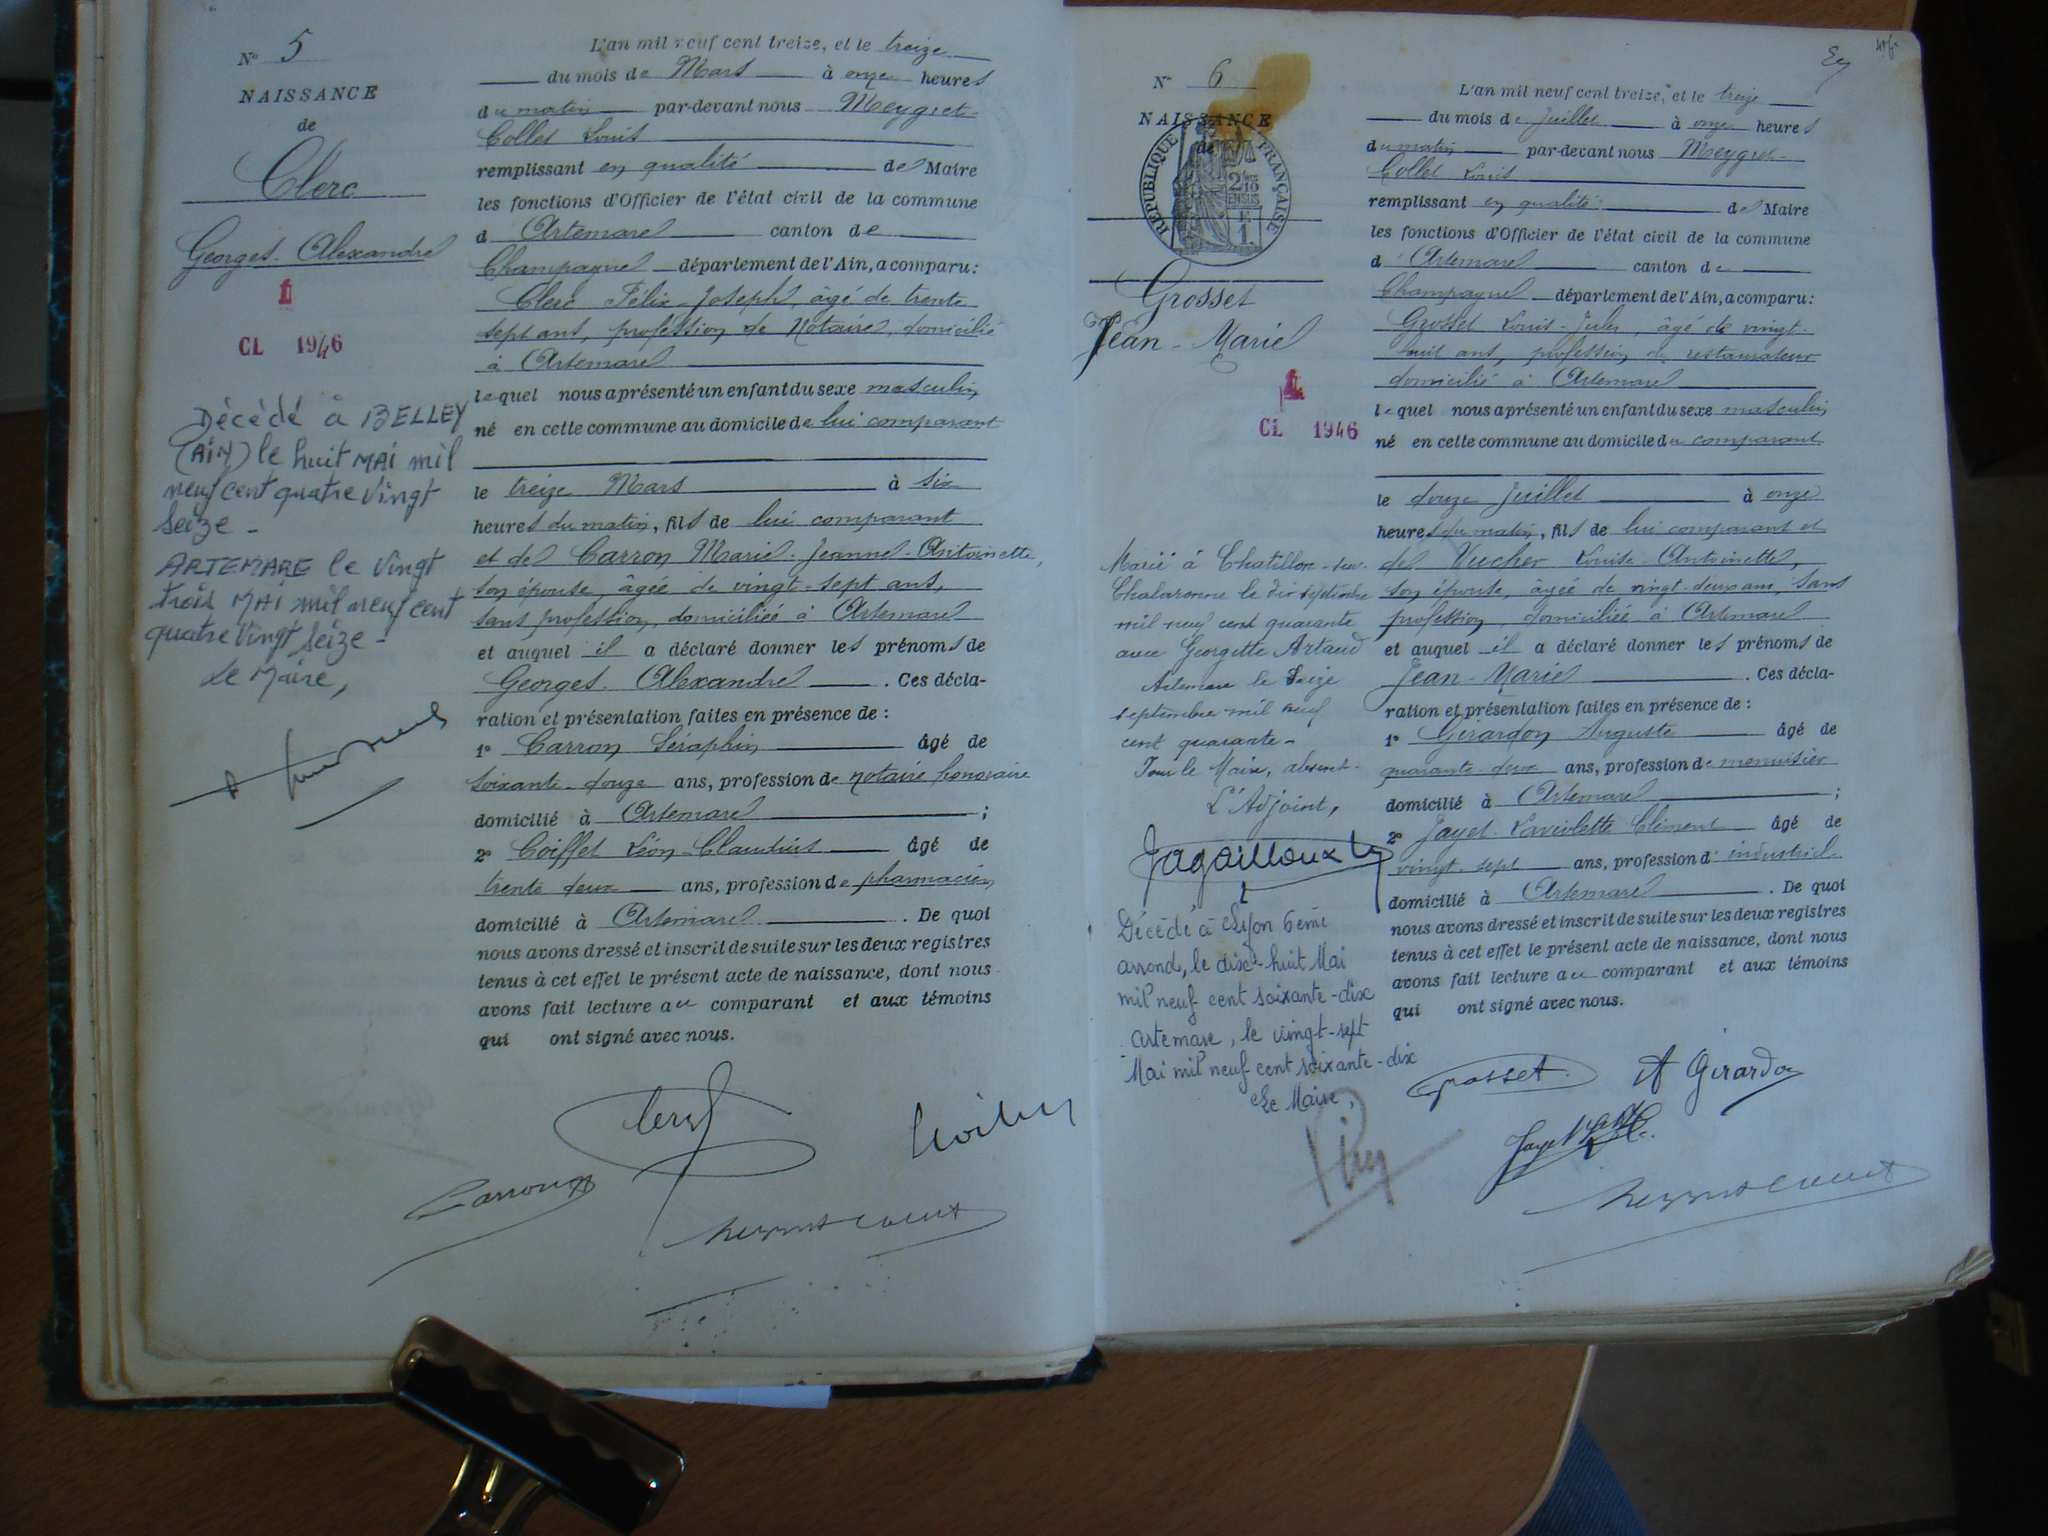 N° 5
NAISSANCE
de
Clerc
Georges-Alexandre
CL 1946
Décédé à BELLEY
(AIN) le huit MAI mil
neuf cent quatre vingt
seize -
ARTEMARE le vingt
trois MAI mil neuf cent
quatre vingt seize -
Le Maire,
L'an mil neuf cent treize, et le treize
du mois de Mars à onze heures
du matin par-devant nous Meygret-
Collet Louis
remplissant en qualité de Maire
les fonctions d'Officier de l'état civil de la commune
d'Artemare canton de
Champagne département de l'Ain, a comparu:
Clerc Félix-Joseph, âgé de trente
sept ans, profession de Notaire, domicilié
à Artemare
lequel nous a présenté un enfant du sexe masculin
né en cette commune au domicile de lui comparant
le treize Mars à six
heures du matin, fils de lui comparant
et de Carron Marie-Jeanne-Antoinette,
son épouse, âgée de vingt-sept ans,
sans profession, domiciliée à Artemare
et auquel il a déclaré donner les prénoms de
Georges-Alexandre. Ces décla-
ration et présentation faites en présence de :
1° Carron Séraphin âgé de
soixante-douze ans, profession de notaire honoraire
domicilié à Artemare ;
2° Coiffet Léon-Claudius âgé de
trente deux ans, profession de pharmacien
domicilié à Artemare. De quoi
nous avons dressé et inscrit de suite sur les deux registres
tenus à cet effet le présent acte de naissance, dont nous
avons fait lecture au comparant et aux témoins
qui ont signé avec nous.
Clerc
Carron
Meygret Collet
N° 6
NAISSANCE
de
RÉPUBLIQUE FRANÇAISE
Grosset
Jean-Marie
CL 1946
Marié à Chatillon-sur-
Chalaronne le dix septembre
mil neuf cent quarante
avec Georgette Artaud
Artemare le seize
septembre mil neuf
cent quarante -
Pour le Maire, absent.
L'Adjoint,
Décédé à Lyon 6ème
arrond, le dix-huit Mai
mil neuf cent soixante-dix
Artemare, le vingt-sept
Mai mil neuf cent soixante-dix
Le Maire,
L'an mil neuf cent treize, et le treize
du mois de Juillet à onze heures
du matin par-devant nous Meygret-
Collet Louis
remplissant en qualité de Maire
les fonctions d'Officier de l'état civil de la commune
d'Artemare canton de
Champagne département de l'Ain, a comparu:
Grosset Louis-Jules, âgé de vingt-
huit ans, profession de restaurateur
domicilié à Artemare
lequel nous a présenté un enfant du sexe masculin
né en cette commune au domicile du comparant
le douze Juillet à onze
heures du matin, fils de lui comparant et
de Vucher Louise-Antoinette,
son épouse, âgée de vingt-deux ans, sans
profession, domiciliée à Artemare
et auquel il a déclaré donner les prénoms de
Jean-Marie. Ces décla-
ration et présentation faites en présence de :
1° Girardon Auguste âgé de
quarante-deux ans, profession de menuisier
domicilié à Artemare ;
2° Jayet-Laviolette Clément âgé de
vingt-sept ans, profession d'industriel
domicilié à Artemare. De quoi
nous avons dressé et inscrit de suite sur les deux registres
tenus à cet effet le présent acte de naissance, dont nous
avons fait lecture au comparant et aux témoins
qui ont signé avec nous.
Grosset. A Girardon
Meygret Collet